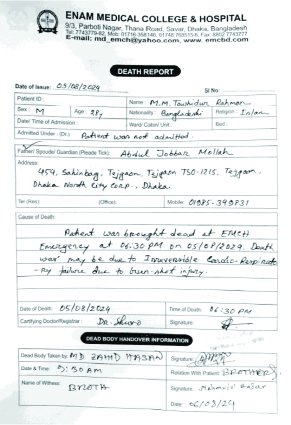 ENAM MEDICAL COLLEGE & HOSPITAL
9/3, Parboti Nagar, Thana Road, Savar, Dhaka, Bangladesh
E-mail: md_emch@yahoo.com, www.emcbd.com
DEATH REPORT
Date of Issue: 05/08/2024 Sl No:
Patient ID: Name: M.M. Touhidur Rahman
Sex: M Age: 28y Nationality: Bangladeshi Religion: Islam
Date/ Time of Admission: Ward/ Cabin/ Unit: Bed:
Admitted Under: (Dr.) Patient was not admitted.
Father/ Spouse/ Guardian (Please Tick): Abdul Jobbar Mollah
Address:
459, Sahinbag, Tejgaon, Tejgaon TSO-1215, Tejgaon,
Dhaka North City Corp., Dhaka.
Tel: (Res): (Office): Mobile:
Cause of Death:
Patient was brought dead at EMCH
Emergency at 06:30 PM on 05/08/2024. Death
was may be due to Irreversible Cardio-Respirato
-ry failure due to gun-shot injury.
Date of Death: 05/08/2024 Time of Death: 06:30 PM
Certifying Doctor/Registrar: Dr. Signature:
DEAD BODY HANDOVER INFORMATION
Dead Body Taken by: MD ZAHID HASAN Signature:
Date & Time: Relation With Patient: BROTHER
Name of Witness: Signature:
Date: 06/08/24